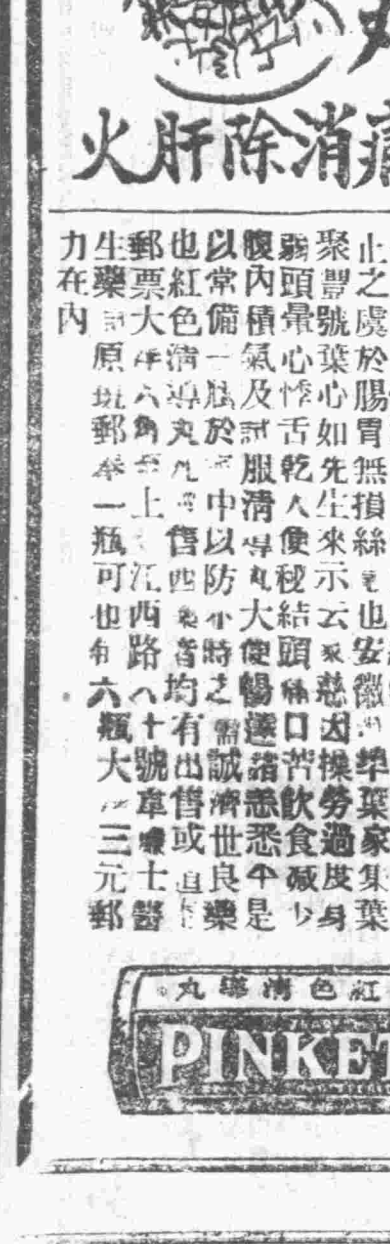 火肝除消
止之處於腸胃無損絲也安徽葉家集葉
聚豐號葉心如先生來示云慈因操勞過度身
弱頭暈心悸舌乾人便秘結頭痛口苦飲食減少
腹內積氣及試服清導丸大便暢達諸恙悉平是
以常備一瓶於中以防不時之需誠濟世良藥
也紅色清導丸凡售西藥者均有出售或直
郵票大洋六角至上江西路八十號韋廉士醫
生藥局原班郵奉一瓶可也每六瓶大洋三元郵
力在內
丸導清色紅
PINKET